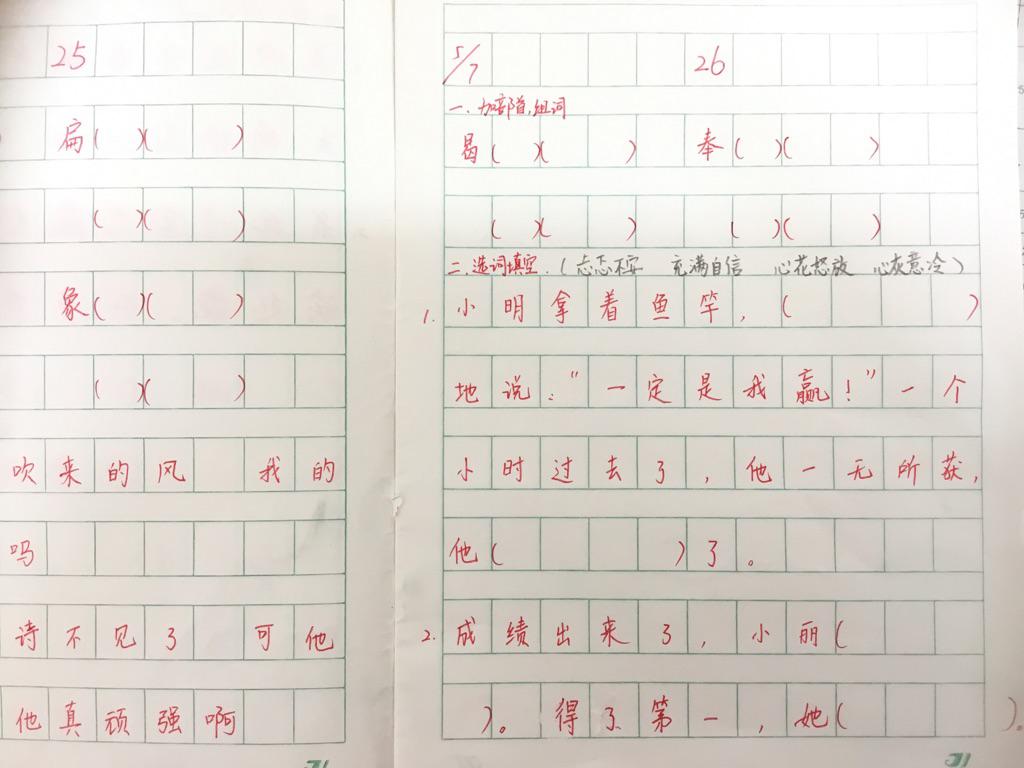 25
扁( )( )
( )( )
象( )( )
( )( )
吹来的风 我的
吗
诗不见了 可他
他真顽强啊
5/7 26
一.加部首,组词
曷( )( ) 奉( )( )
( )( ) ( )( )
二.选词填空.(忐忑不安 充满自信 心花怒放 心灰意冷)
1.小明拿着鱼竿,( )
地说:"一定是我赢!"一个
小时过去了,他一无所获,
他( )了。
2.成绩出来了,小丽(
)。得了第一,她( )。